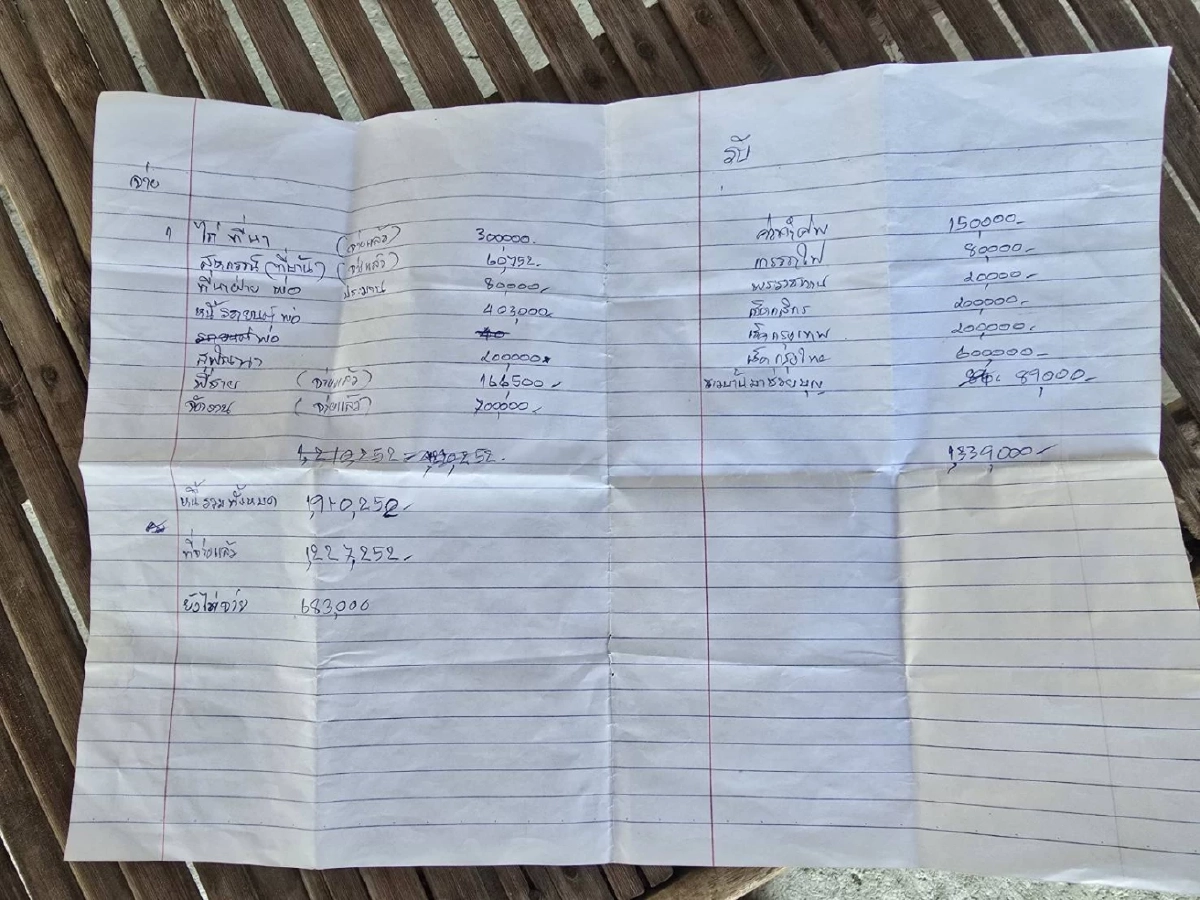 จ่าย
1 ไถ่ ที่นา (จ่ายแล้ว) 300000.
สหกรณ์ (ที่บ้าน) (จ่ายแล้ว) 60,752.
ที่นาฝ่าย พ่อ ประมาณ 80,000.-
หนี้รถยนต์ พ่อ 403,000.-
พ่อ
200,000
พี่ชาย (จ่ายแล้ว) 166,500.-
จัดงาน (จ่ายแล้ว) 700,000.-
1,210,252 -
หนี้รวมทั้งหมด 1,910,252.-
ที่จ่ายแล้ว 1,227,252.-
ยังไม่จ่าย 683,000
รับ
ค่าทำศพ 150,000.-
การรถไฟ 80,000.-
พระราชทาน 20,000.-
กสิกร 200,000.-
กรุงเทพ 200,000.-
กรุงไทย 600,000.-
ชาวบ้านมาช่วยบุญ 89,000.-
1,339,000.-